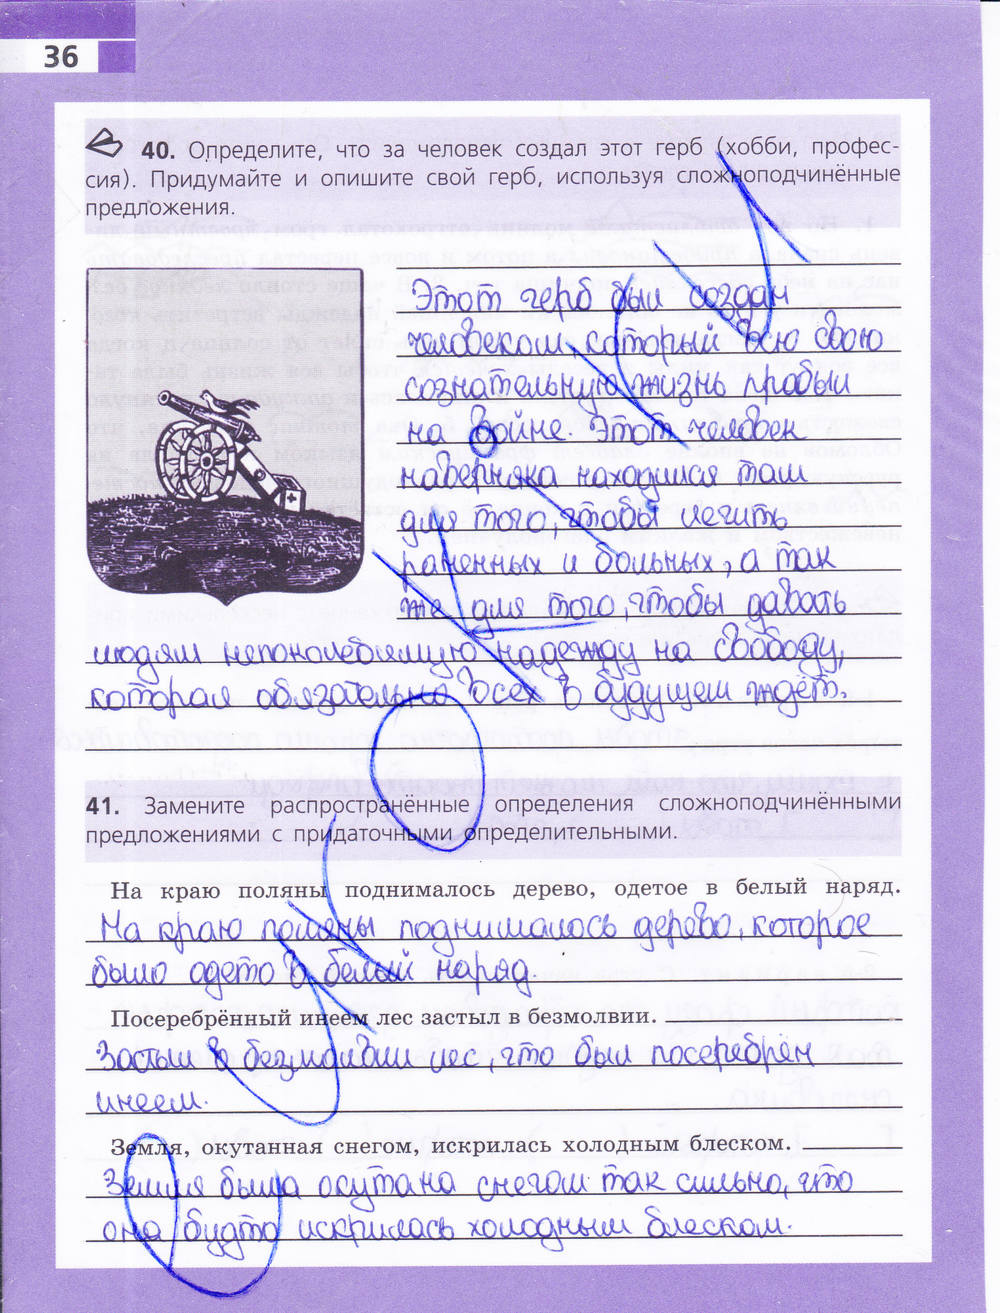 36
40. Определите, что за человек создал этот герб (хобби, профес-
сия). Придумайте и опишите свой герб, используя сложноподчинённые
предложения.
Этот герб был создан
человеком, который всю свою
сознательную жизнь пробыл
на войне. Этот человек
наверняка находился там
для того, чтобы лечить
раненных и больных, а так
же для того, чтобы давать
людям непоколебимую надежду на свободу,
которая обязательно всех в будущем ждёт.
41. Замените распространённые определения сложноподчинёнными
предложениями с придаточными определительными.
На краю поляны поднималось дерево, одетое в белый наряд.
На краю поляны поднималось дерево, которое
было одето в белый наряд.
Посеребрённый инеем лес застыл в безмолвии.
Застыл в безмолвии лес, что был посеребрён
инеем.
Земля, окутанная снегом, искрилась холодным блеском.
Земля была окутана снегом так сильно, что
она будто искрилась холодным блеском.